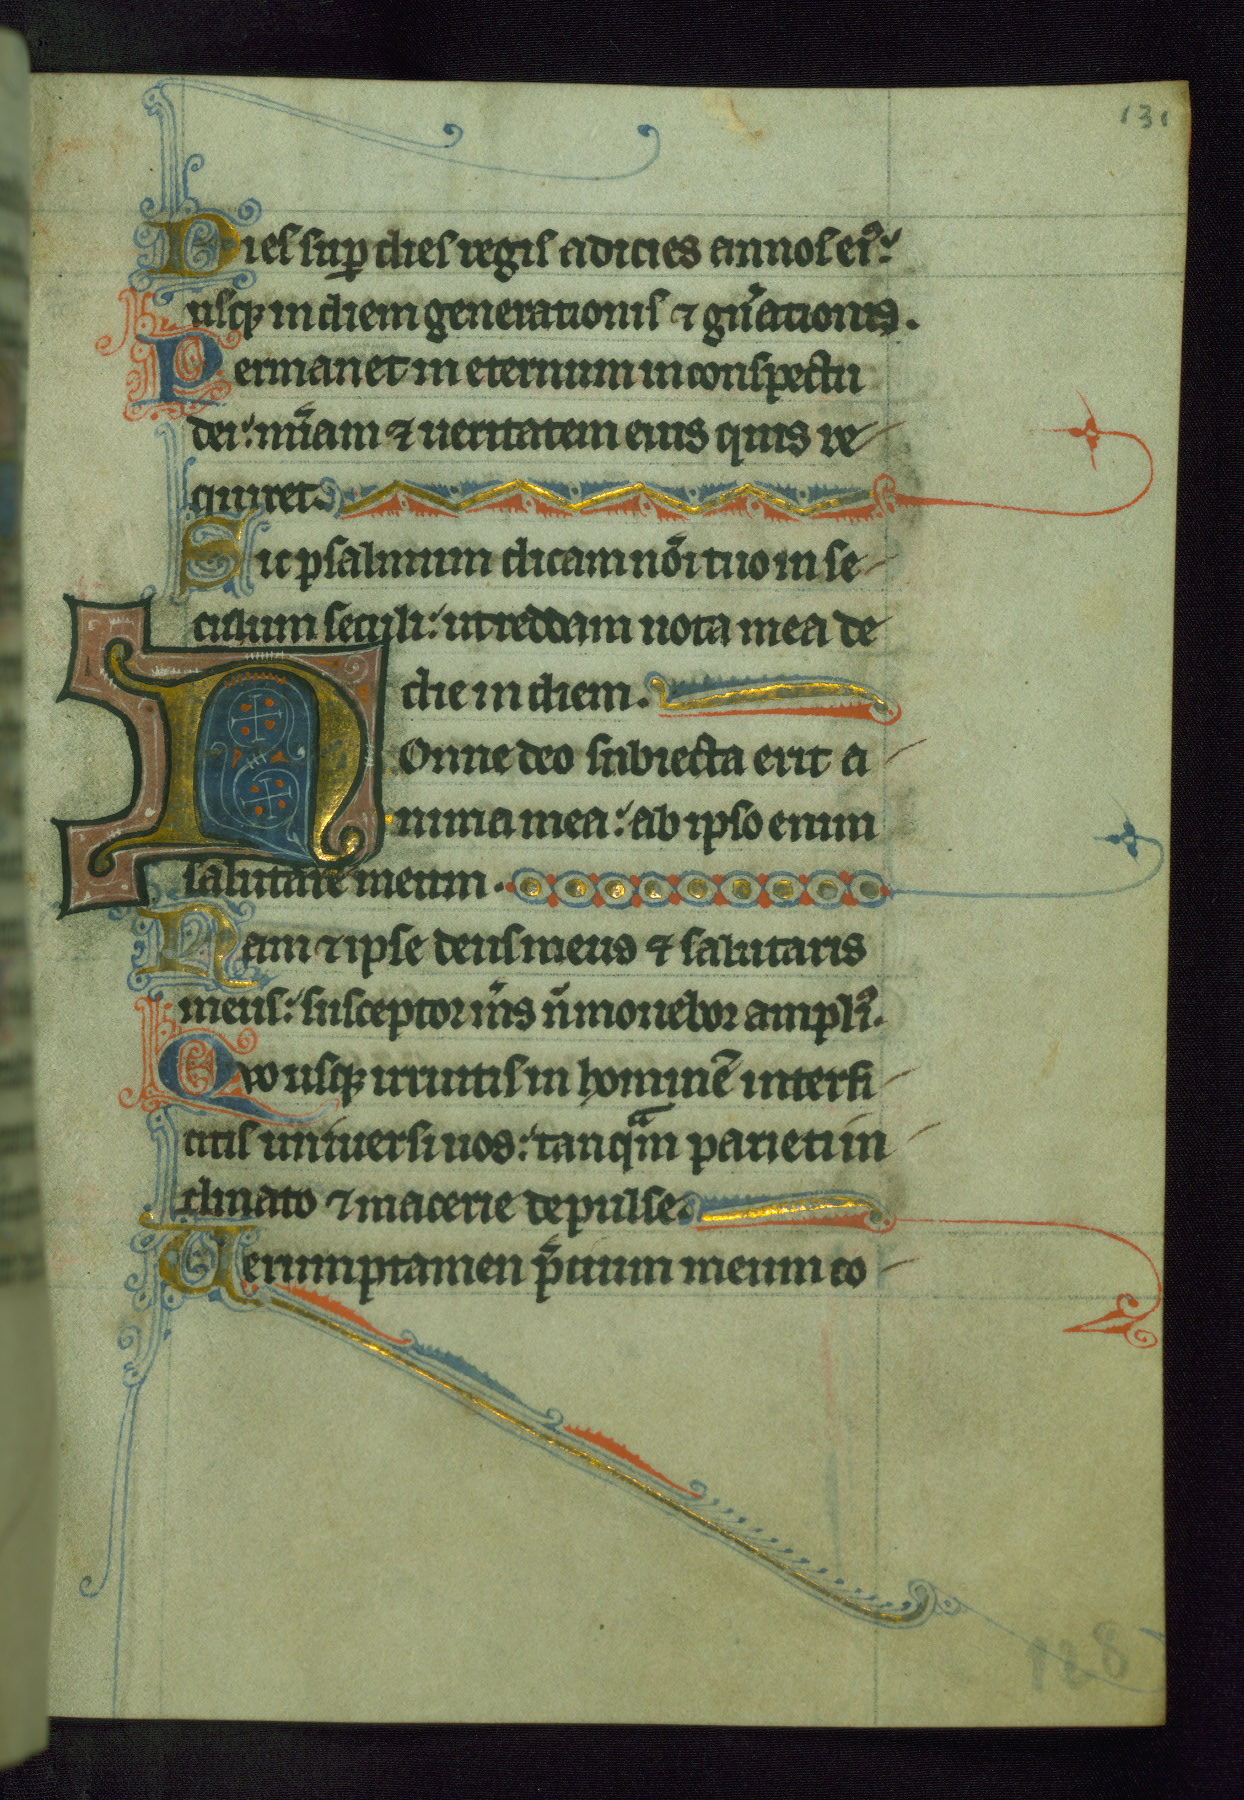 131
Dies sup dies regis adicies annos ei⁹:
usq; in diem generationis ⁊ gn̄ationis.
Permanet in eternum in conspectu
dei: mīam ⁊ ueritatem eius quis re
quiret.
Sic psalmum dicam nōi tuo in se
culum seculi: ut reddam uota mea de
die in diem.
Nonne deo subiecta erit a
nima mea: ab ipso enim
salutare meum.
Nam ⁊ ipse deus meus ⁊ salutaris
meus: susceptor m̄s n̄ mouebor ampli⁹.
Quo usq; irruitis in hominē interfi
citis uniuersi uos: tanqᵃm parieti in
clinato ⁊ macerie depulse.
Uerumptamen p̄cium meum co
128